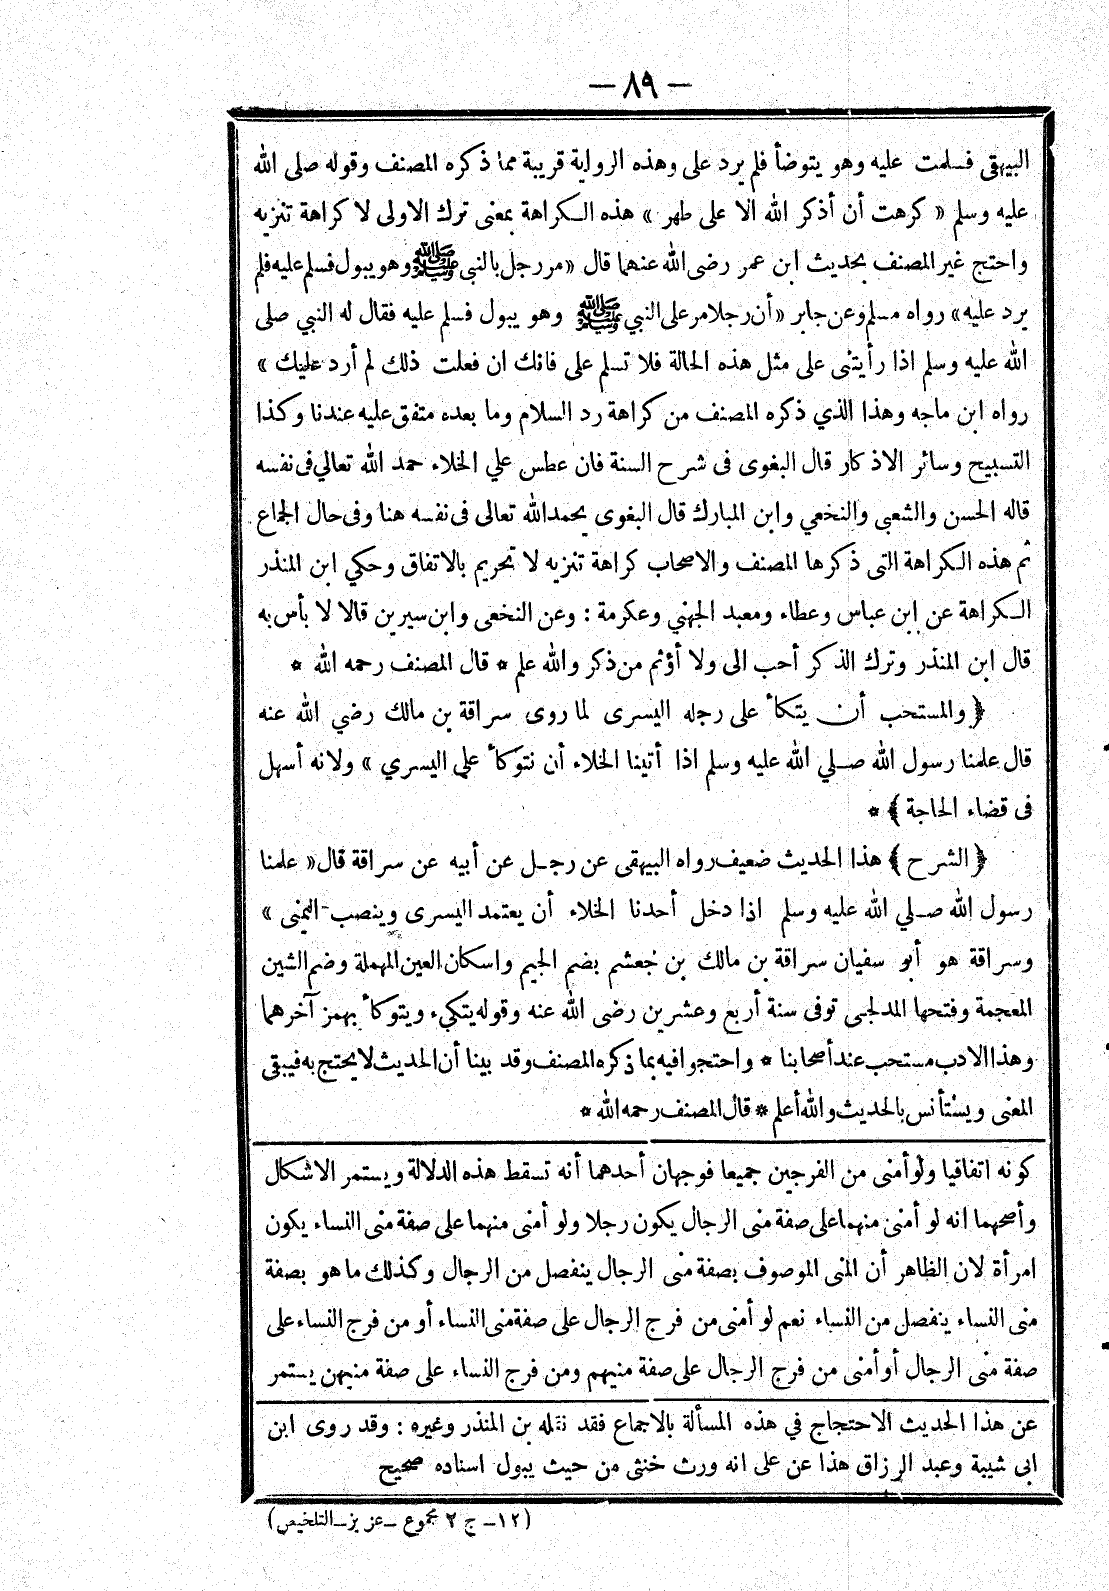 — ٨٩ —
البيهقى فسلمت عليه وهو يتوضأ فلم يرد على وهذه الرواية قريبة مما ذكره المصنف وقوله صلى الله
عليه وسلم « كرهت أن أذكر الله الا على طهر » هذه الكراهة بمعنى ترك الاولى لا كراهة تنزيه
واحتج غير المصنف بحديث ابن عمر رضى الله عنهما قال «مر رجل بالنبى ﷺ وهو يبول فسلم عليه فلم
يرد عليه» رواه مسلم وعن جابر «أن رجلا مر على النبي ﷺ وهو يبول فسلم عليه فقال له النبي صلى
الله عليه وسلم اذا رأيتنى على مثل هذه الحالة فلا تسلم على فانك ان فعلت ذلك لم أرد عليك »
رواه ابن ماجه وهذا الذي ذكره المصنف من كراهة رد السلام وما بعده متفق عليه عندنا وكذا
التسبيح وسائر الاذكار قال البغوى فى شرح السنة فان عطس علي الخلاء حمد الله تعالي فى نفسه
قاله الحسن والشعبى والنخعي وابن المبارك قال البغوى يحمد الله تعالى فى نفسه هنا وفى حال الجماع
ثم هذه الكراهة التى ذكرها المصنف والاصحاب كراهة تنزيه لا تحريم بالاتفاق وحكي ابن المنذر
الكراهة عن ابن عباس وعطاء ومعبد الجهني وعكرمة : وعن النخعى وابن سيرين قالا لا بأس به
قال ابن المنذر وترك الذكر أحب الى ولا أؤثم من ذكر والله علم * قال المصنف رحمه الله *
﴿ والمستحب أن يتكأ على رجله اليسرى لما روى سراقة بن مالك رضي الله عنه
قال علمنا رسول الله صلي الله عليه وسلم اذا أتينا الخلاء أن نتوكأ على اليسري » ولانه أسهل
فى قضاء الحاجة ﴾ *
﴿ الشرح ﴾ هذا الحديث ضعيف رواه البيهقى عن رجل عن أبيه عن سراقة قال « علمنا
رسول الله صلي الله عليه وسلم اذا دخل أحدنا الخلاء أن يعتمد اليسرى وينصب اليمنى »
وسراقة هو أبو سفيان سراقة بن مالك بن جعشم بضم الجيم واسكان العين المهملة وضم الشين
المعجمة وفتحها المدلجى توفى سنة أربع وعشرين رضى الله عنه وقوله يتكىء ويتوكأ بهمز آخرهما
وهذا الادب مستحب عند أصحابنا * واحتجوا فيه بما ذكره المصنف وقد بينا أن الحديث لا يحتج به فيبقى
المعنى ويستأنس بالحديث والله أعلم * قال المصنف رحمه الله *
كونه اتفاقيا ولو أمنى من الفرجين جميعا فوجهان أحدهما أنه تسقط هذه الدلالة ويستمر الاشكال
وأصحهما انه لو أمنى منهما على صفة منى الرجال يكون رجلا ولو أمنى منهما على صفة منى النساء يكون
امرأة لان الظاهر أن المنى الموصوف بصفة منى الرجال ينفصل من الرجال وكذلك ما هو بصفة
منى النساء ينفصل من النساء نعم لو أمنى من فرج الرجال على صفة منى النساء أو من فرج النساء على
صفة منى الرجال أو أمنى من فرج الرجال على صفة منيهم ومن فرج النساء على صفة منيهن يستمر
عن هذا الحديث الاحتجاج في هذه المسألة بالاجماع فقد نقله بن المنذر وغيره : وقد روى ابن
ابى شيبة وعبد الرزاق هذا عن على انه ورث خنثى من حيث يبول اسناده صحيح
(١٢ــ ج ٢ مجموع ــ عزيز ــ التلخيص)